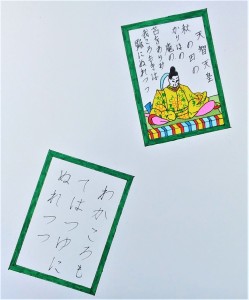 天智天皇
秋の田の
かりほの
庵の
苫をあらみ
我ころもては
露にぬれつつ
わかころも
てはつゆに
ぬれつつ